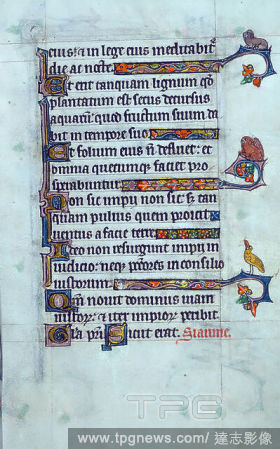 eius: & in lege eius meditabit
die ac nocte.
Et erit tanquam lignum qd
plantatum est secus decursus
aquarum: quod fructum suum da
bit in tempore suo
Et folium eius n̄ defluet: et
omnia quecumque faciet pro
sperabuntur
Non sic impii non sic: sed tan
quam puluis quem proicit
uentus a facie terre
Ideo non resurgunt impii in
iudicio: neq; peccores in consilio
iustorum
Qm̄ nouit dominus uiam
iustor: & iter impior peribit
Gla pri Sicut erat.
TPG
www.tpgnews.com/ 達志影像